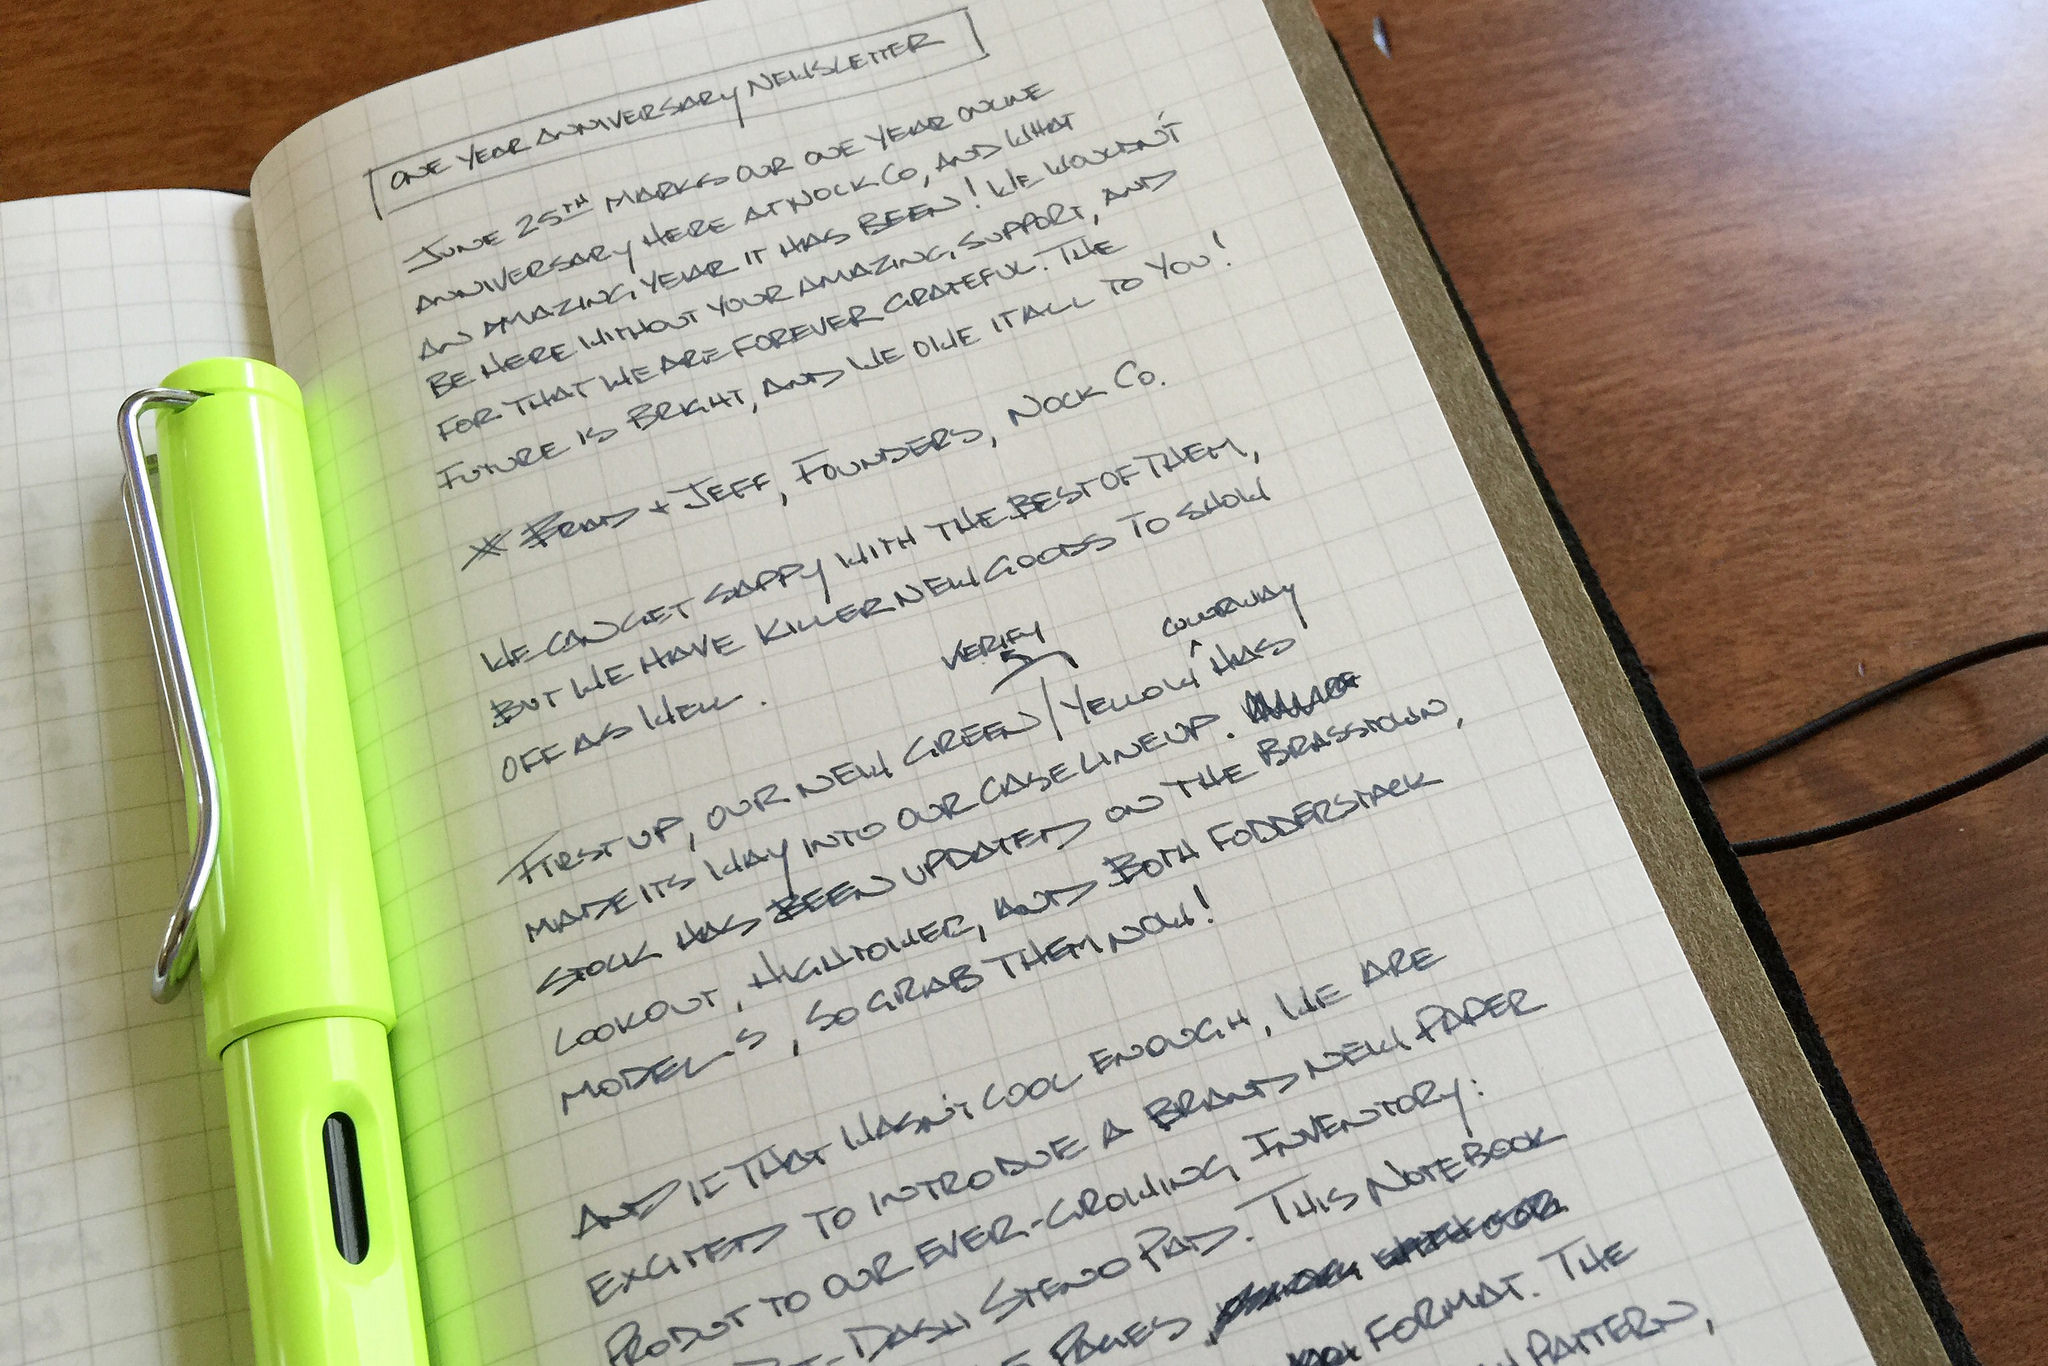 ONE YEAR ANNIVERSARY NEWSLETTER
JUNE 25TH MARKS OUR ONE YEAR ONLINE
ANNIVERSARY HERE AT NOCK CO, AND WHAT
AN AMAZING YEAR IT HAS BEEN! WE WOULDN'T
BE HERE WITHOUT YOUR AMAZING SUPPORT, AND
FOR THAT WE ARE FOREVER GRATEFUL. THE
FUTURE IS BRIGHT, AND WE OWE IT ALL TO YOU!
* BRAD + JEFF, FOUNDERS, NOCK CO.
WE CAN GET SAPPY WITH THE BEST OF THEM,
BUT WE HAVE KILLER NEW GOODS TO SHOW
OFF AS WELL.
VERIFY COLORWAY
FIRST UP, OUR NEW GREEN/YELLOW HAS
MADE ITS WAY INTO OUR CASE LINEUP.
STOCK HAS BEEN UPDATED ON THE BRASSTOWN,
LOOKOUT, HIGHTOWER, AND BOTH FODDERSTACK
MODELS, SO GRAB THEM NOW!
AND IF THAT WASN'T COOL ENOUGH, WE ARE
EXCITED TO INTRODUE A BRAND NEW PAPER
PRODUT TO OUR EVER-GROWING INVENTORY:
DASH STENO PAD. THIS NOTEBOOK
PAGES
FORMAT. THE
PATTERN,